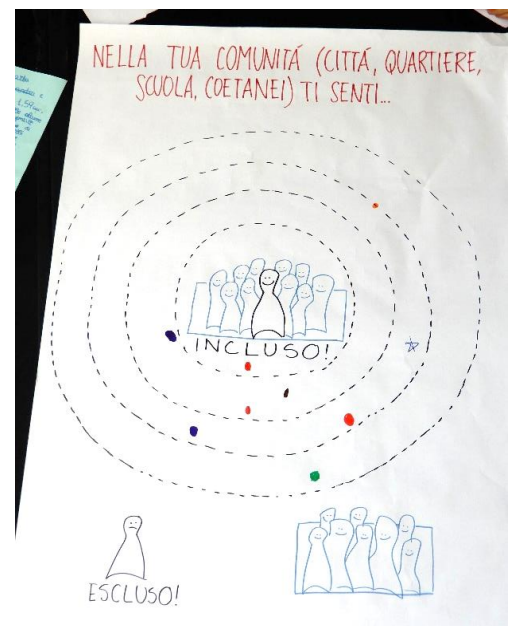 NELLA TUA COMUNITÁ (CITTÁ, QUARTIERE,
SCUOLA, COETANEI) TI SENTI...
INCLUSO!
ESCLUSO!